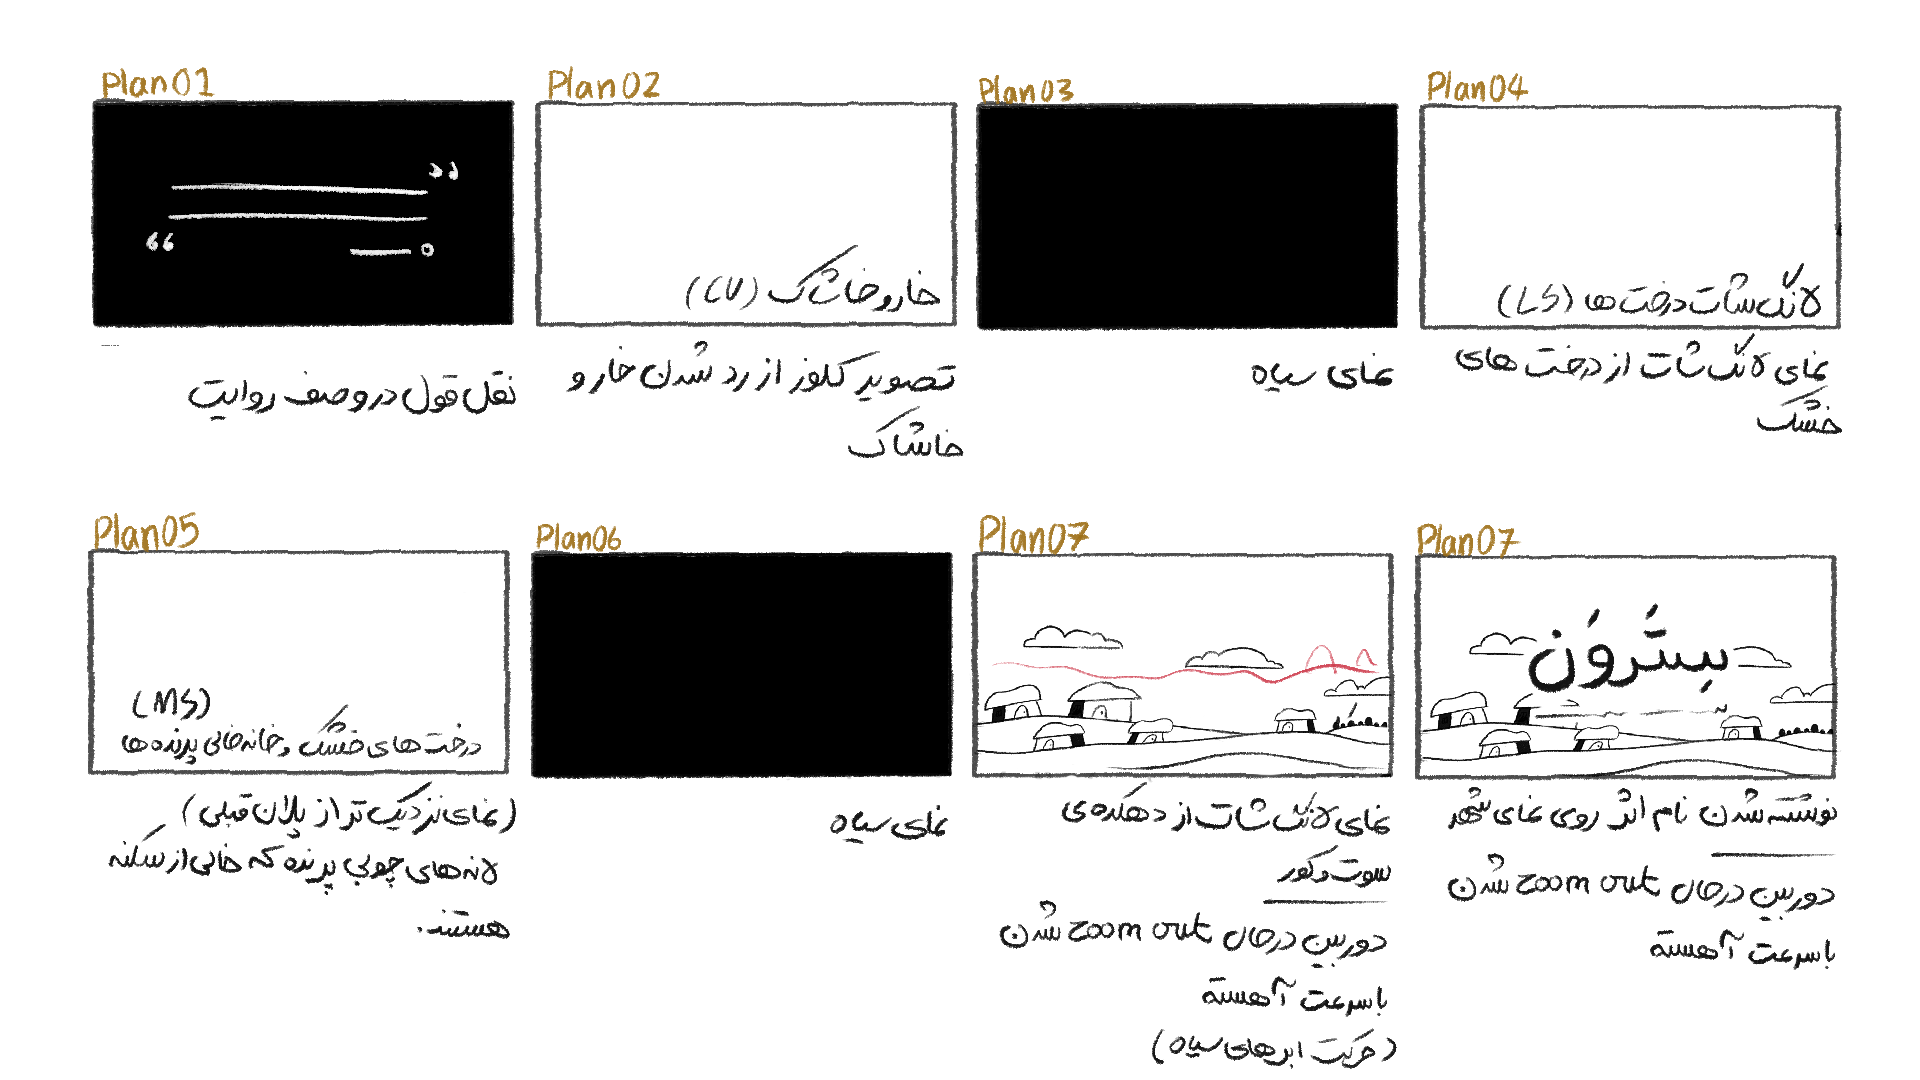 Plan01
”
“
نقل قول در وصف روایت
Plan02
خار و خاشاک (CU)
تصویر کلوز از رد شدن خار و
خاشاک
Plan03
نمای سیاه
Plan04
لانگ شات درخت ها (LS)
نمای لانگ شات از درخت های
خشک
Plan05
(MS)
درخت های خشک و خانه خالی پرنده ها
(نمای نزدیک تر از پلان قبلی)
لانه های چوبی پرنده که خالی از سکنه
هستند.
Plan06
نمای سیاه
Plan07
نمای لانگ شات از دهکده ی
سوت و کور
دوربین در حال zoom out شدن
با سرعت آهسته
(حرکت ابرهای سیاه)
Plan07
نوشته شدن نام اثر روی نمای شهر
دوربین در حال zoom out شدن
با سرعت آهسته